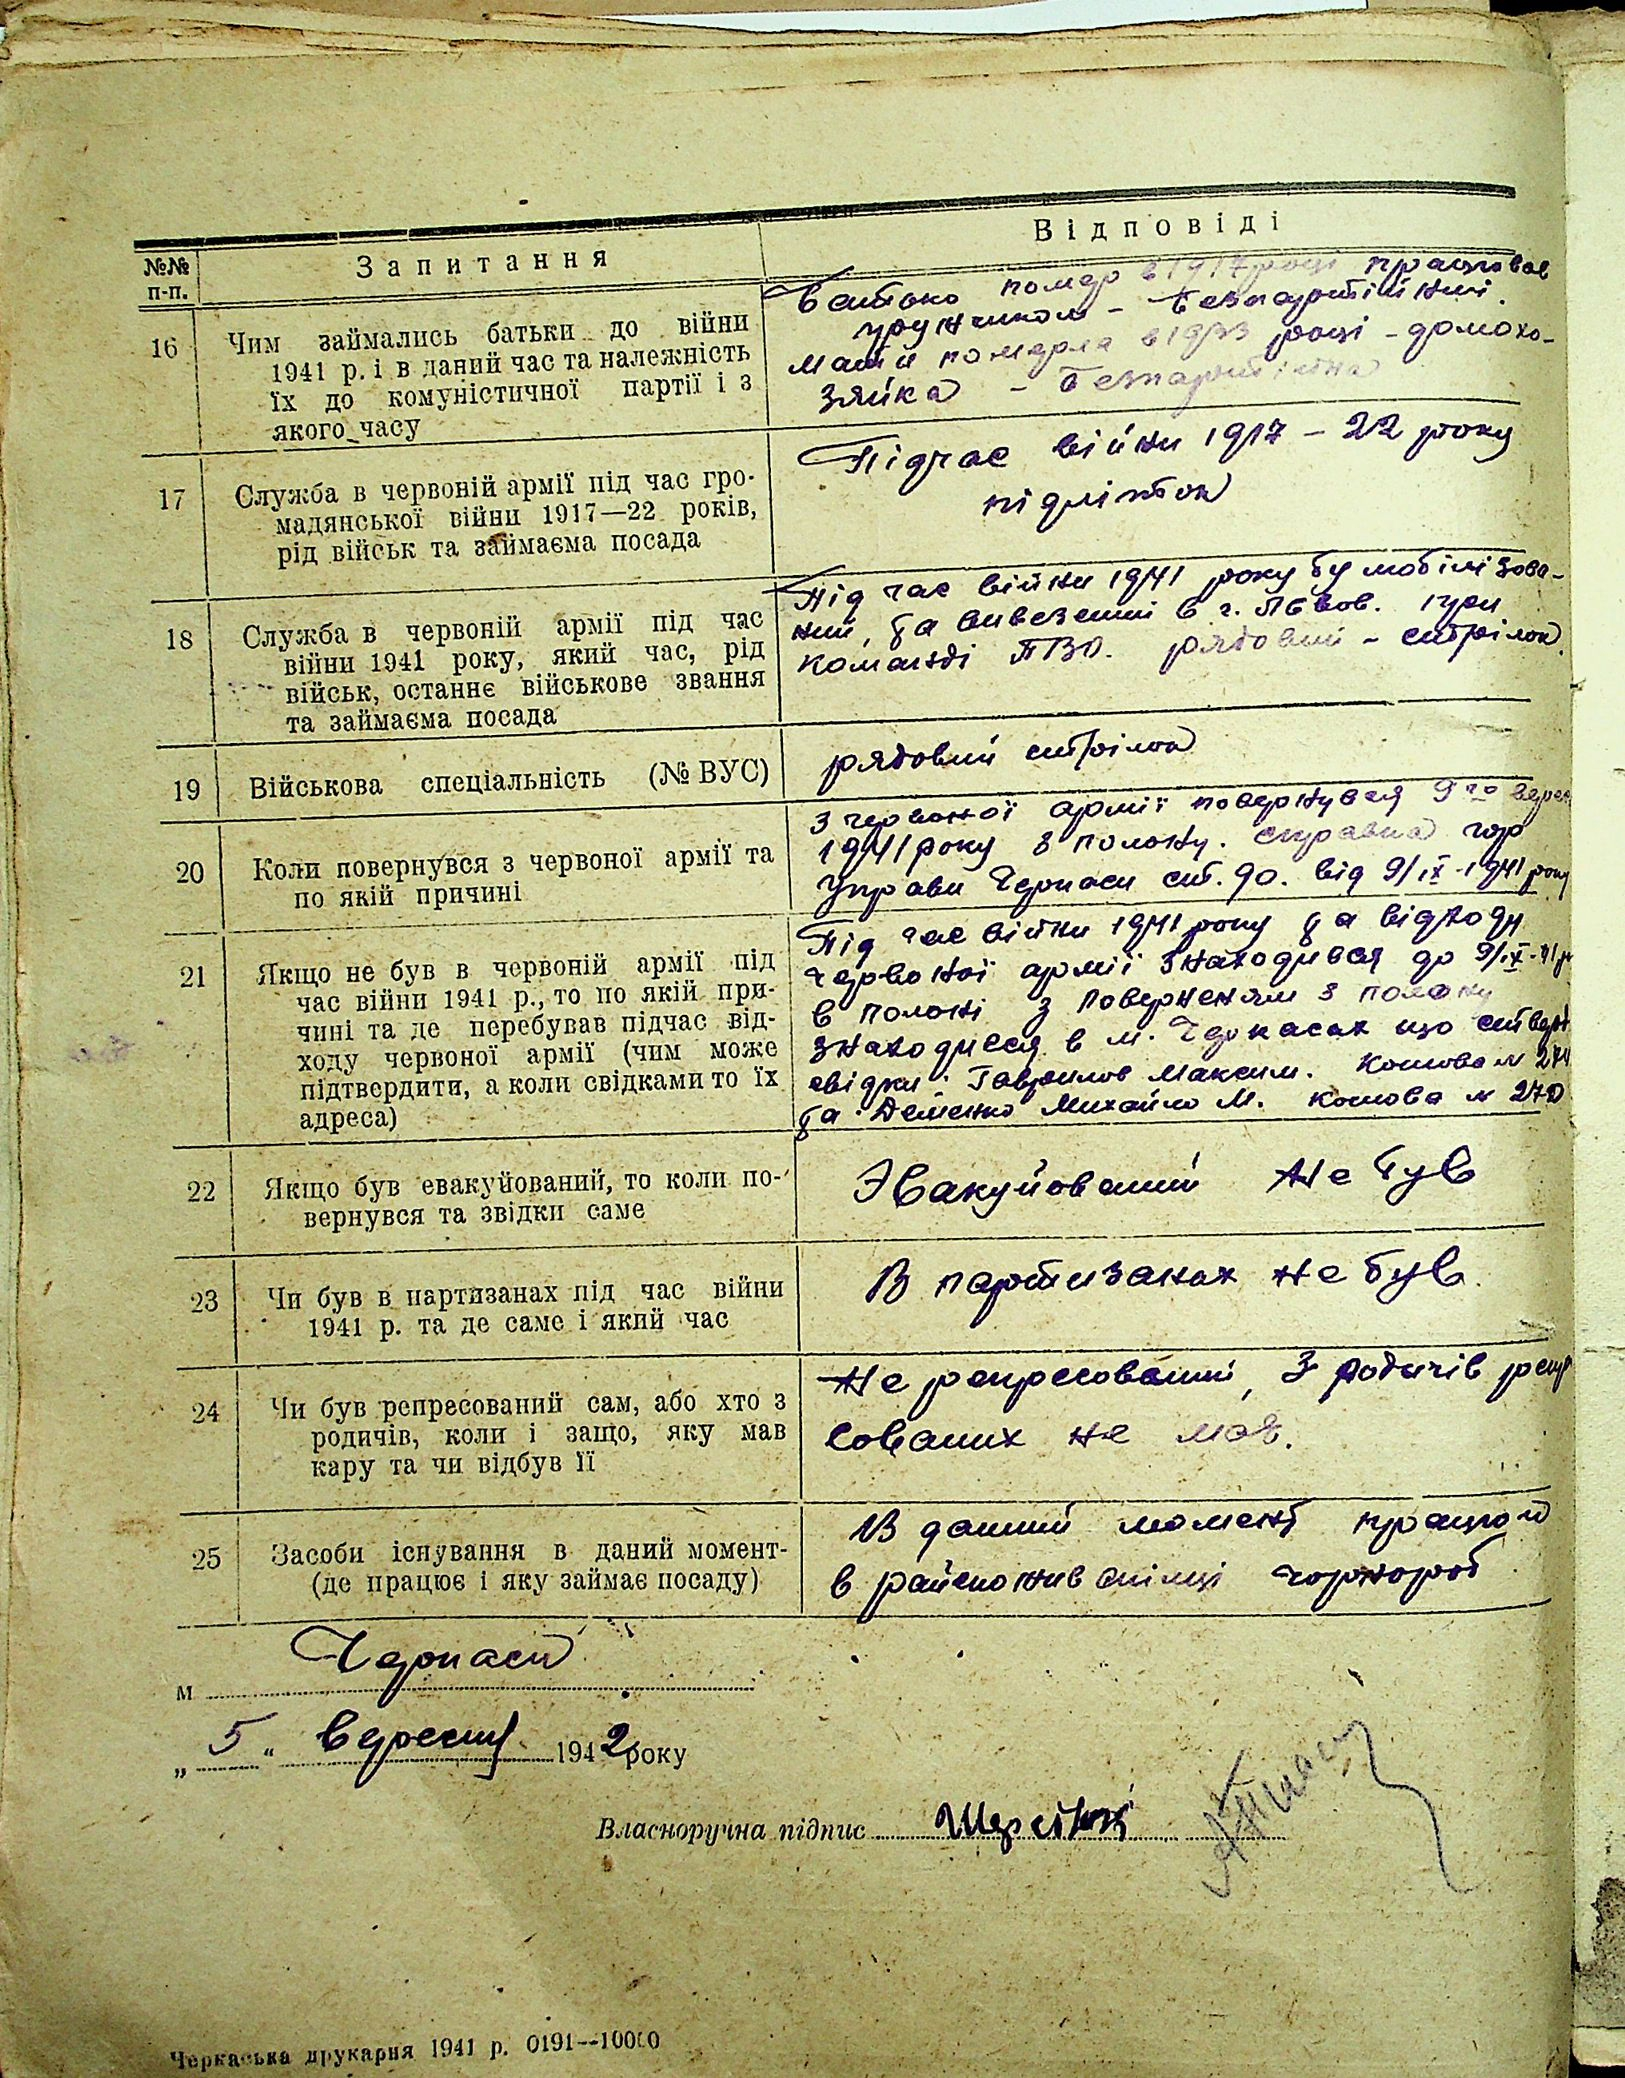 №№ п-п.
Запитання
Відповіді
16
Чим займались батьки до війни
1941 р. і в даний час та належність
їх до комуністичної партії і з
якого часу
Батько помер в 1917 році працював
грузчиком - безпартійний.
Мати померла в 1933 році - домохо-
зяйка - безпартійна
17
Служба в червоній армії під час гро-
мадянської війни 1917—22 років,
рід військ та займаєма посада
Підчас війни 1917 - 22 року
підліток
18
Служба в червоній армії під час
війни 1941 року, який час, рід
військ, останнє військове звання
та займаєма посада
Під час війни 1941 року був мобілізова-
ний, та вивезений в г. Львов. при
команді ПВО. рядовий - стрілок.
19
Військова спеціальність (№ ВУС)
рядовий стрілок
20
Коли повернувся з червоної армії та
по якій причині
З червоної армії повернувся 9го верес
1941 року з полону. справка гор
управи Черкаси від 9/ІХ-1941 року
21
Якщо не був в червоній армії під
час війни 1941 р., то по якій при-
чині та де перебував підчас від-
ходу червоної армії (чим може
підтвердити, а коли свідками то їх
адреса)
Під час війни 1941 року та відходу
червоної армії знаходився до 9/ІХ-41р
в полоні з поверненям з полону
знаходився в м. Черкасах що ствер
свідки: Гаврилов Максим. Кошова № 274
та Деменко Михайло М. Кошова № 270
22
Якщо був евакуйований, то коли по-
вернувся та звідки саме
Эвакуйований не був
23
Чи був в партизанах під час війни
1941 р. та де саме і який час
В партизанах не був.
24
Чи був репресований сам, або хто з
родичів, коли і защо, яку мав
кару та чи відбув її
Не репресований, З родичів репр
сованих не має.
25
Засоби існування в даний момент-
(де працює і яку займає посаду)
В данний момент працюю
в райспоживспілці чорнороб
м Черкаси
„ 5 “ вересня 1942 року
Власноручна підпис
Черкаська друкарня 1941 р. 0191--10000